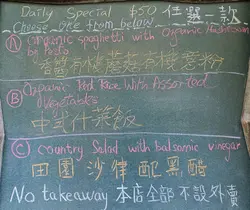 Daily Special $50 任選一款
Choose one from below
A Organic spaghetti with Organic Mushroom
be Pesto
香醬有機蘑菇有機意粉
B Organic Red Rice With Assorted
Vegetables
中式什菜飯
C Country Salad with balsamic vinegar
田園沙律配黑醋
No takeaway 本店全部不設外賣